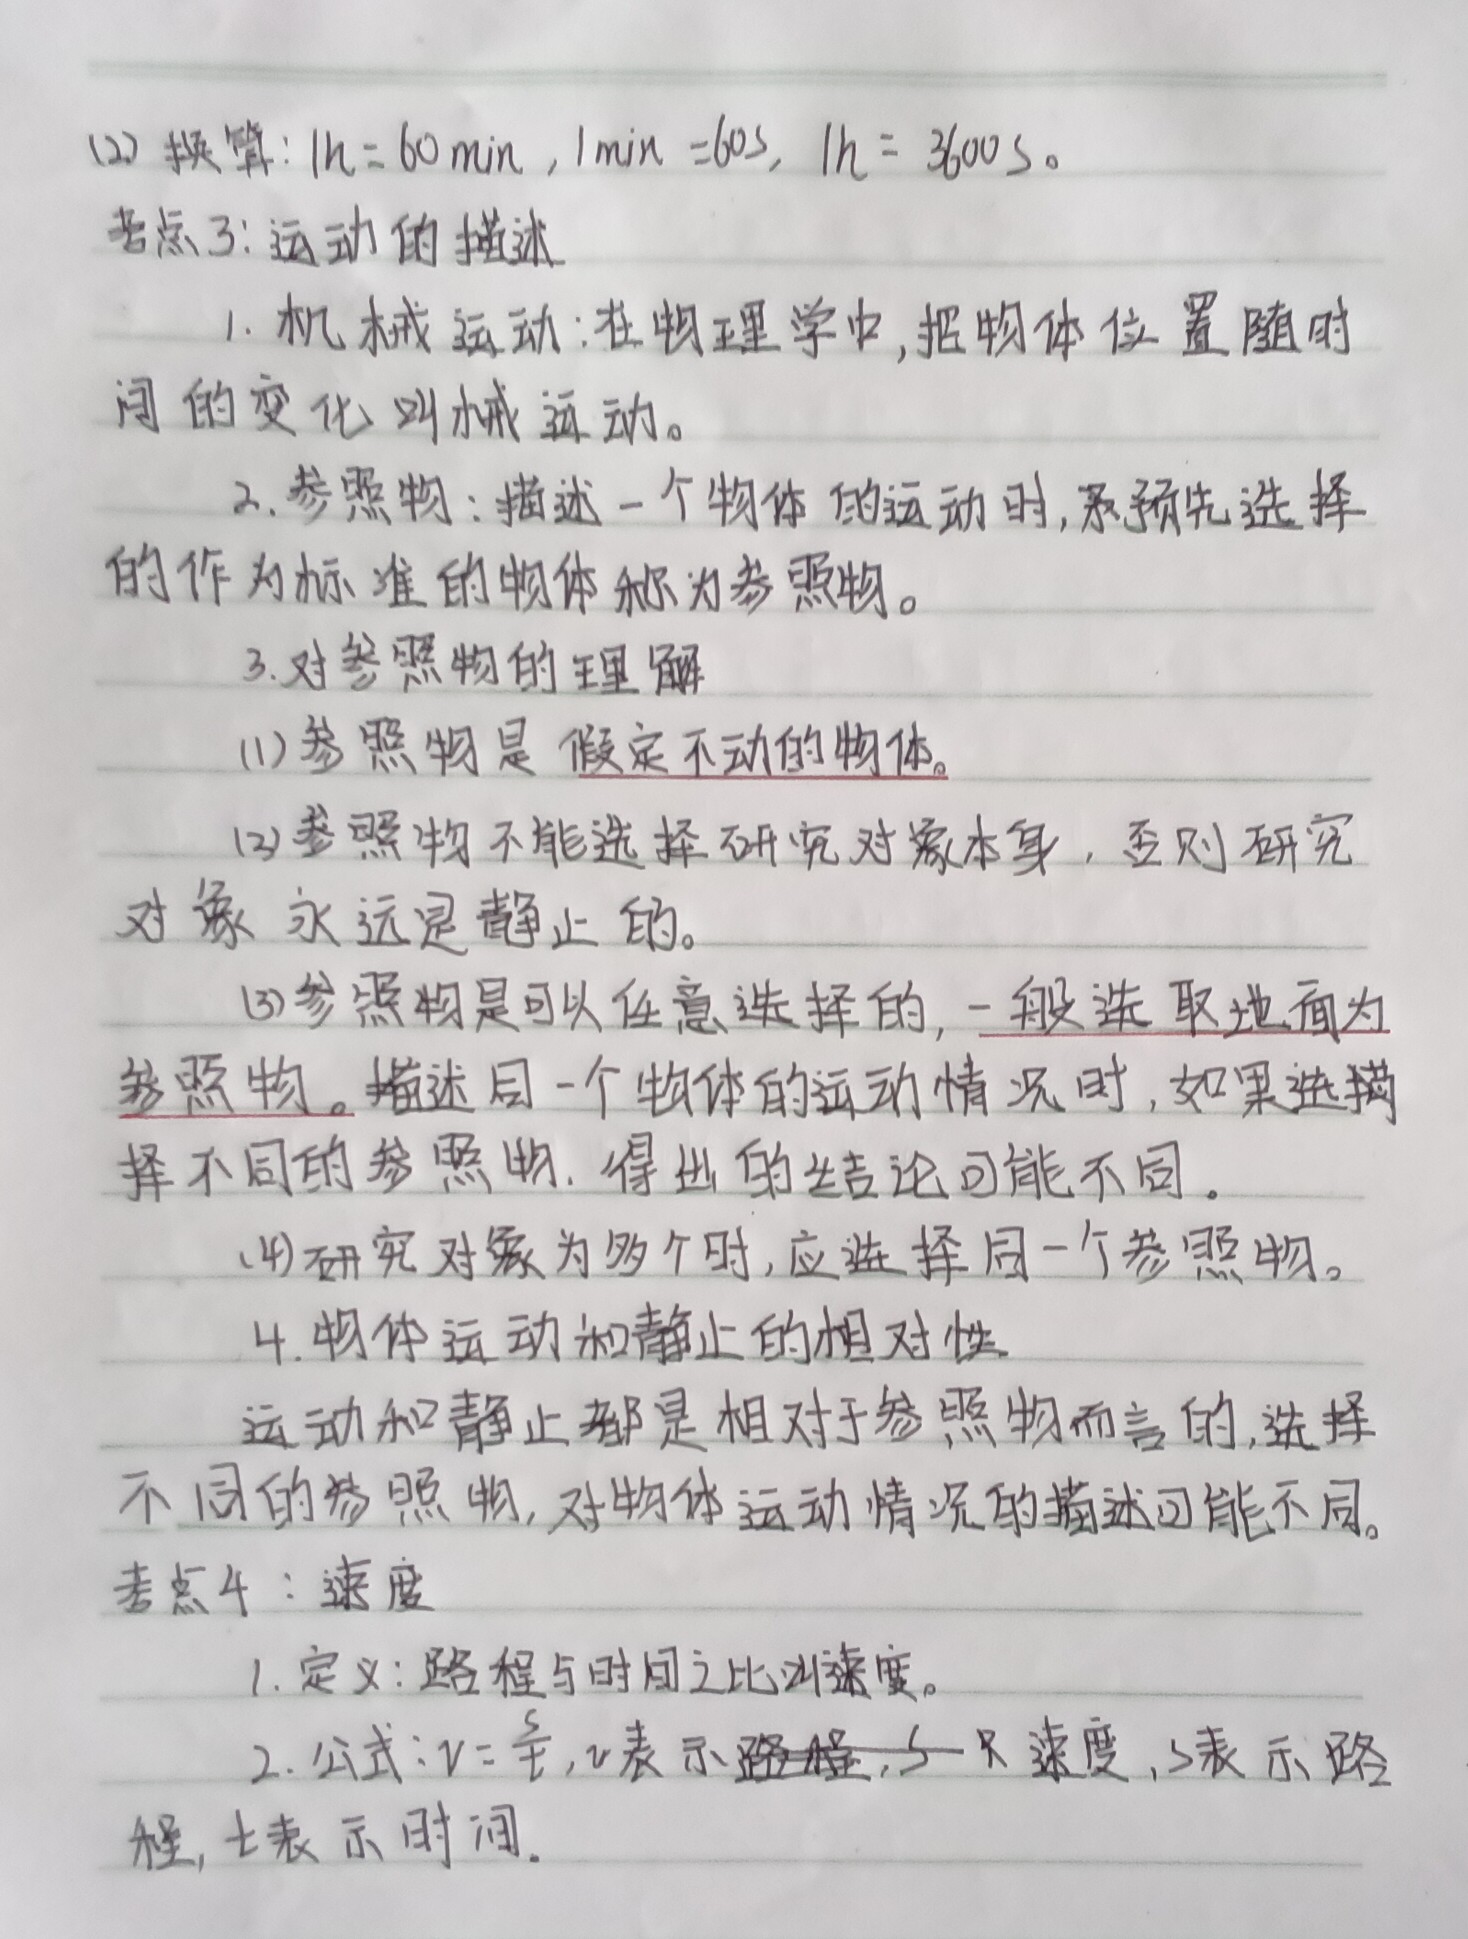 (2) 换算:1h=60min,1min=60s,1h=3600s。
考点3:运动的描述
1.机械运动:在物理学中,把物体位置随时
间的变化叫械运动。
2.参照物:描述一个物体的运动时,预先选择
的作为标准的物体称为参照物。
3.对参照物的理解
(1)参照物是假定不动的物体。
(2)参照物不能选择研究对象本身,否则研究
对象永远是静止的。
(3)参照物是可以任意选择的,一般选取地面为
参照物。描述同一个物体的运动情况时,如果选
择不同的参照物.得出的结论可能不同.
(4)研究对象为多个时,应选择同一个参照物。
4.物体运动和静止的相对性
运动和静止都是相对于参照物而言的,选择
不同的参照物,对物体运动情况的描述可能不同。
考点4:速度
1.定义:路程与时间之比叫速度。
2.公式:v=s/t,v表示速度,s表示路
程,t表示时间.